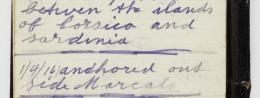 between the islands
of Corsica and
Sardinia
1/4/16 anchored out
side Marcals